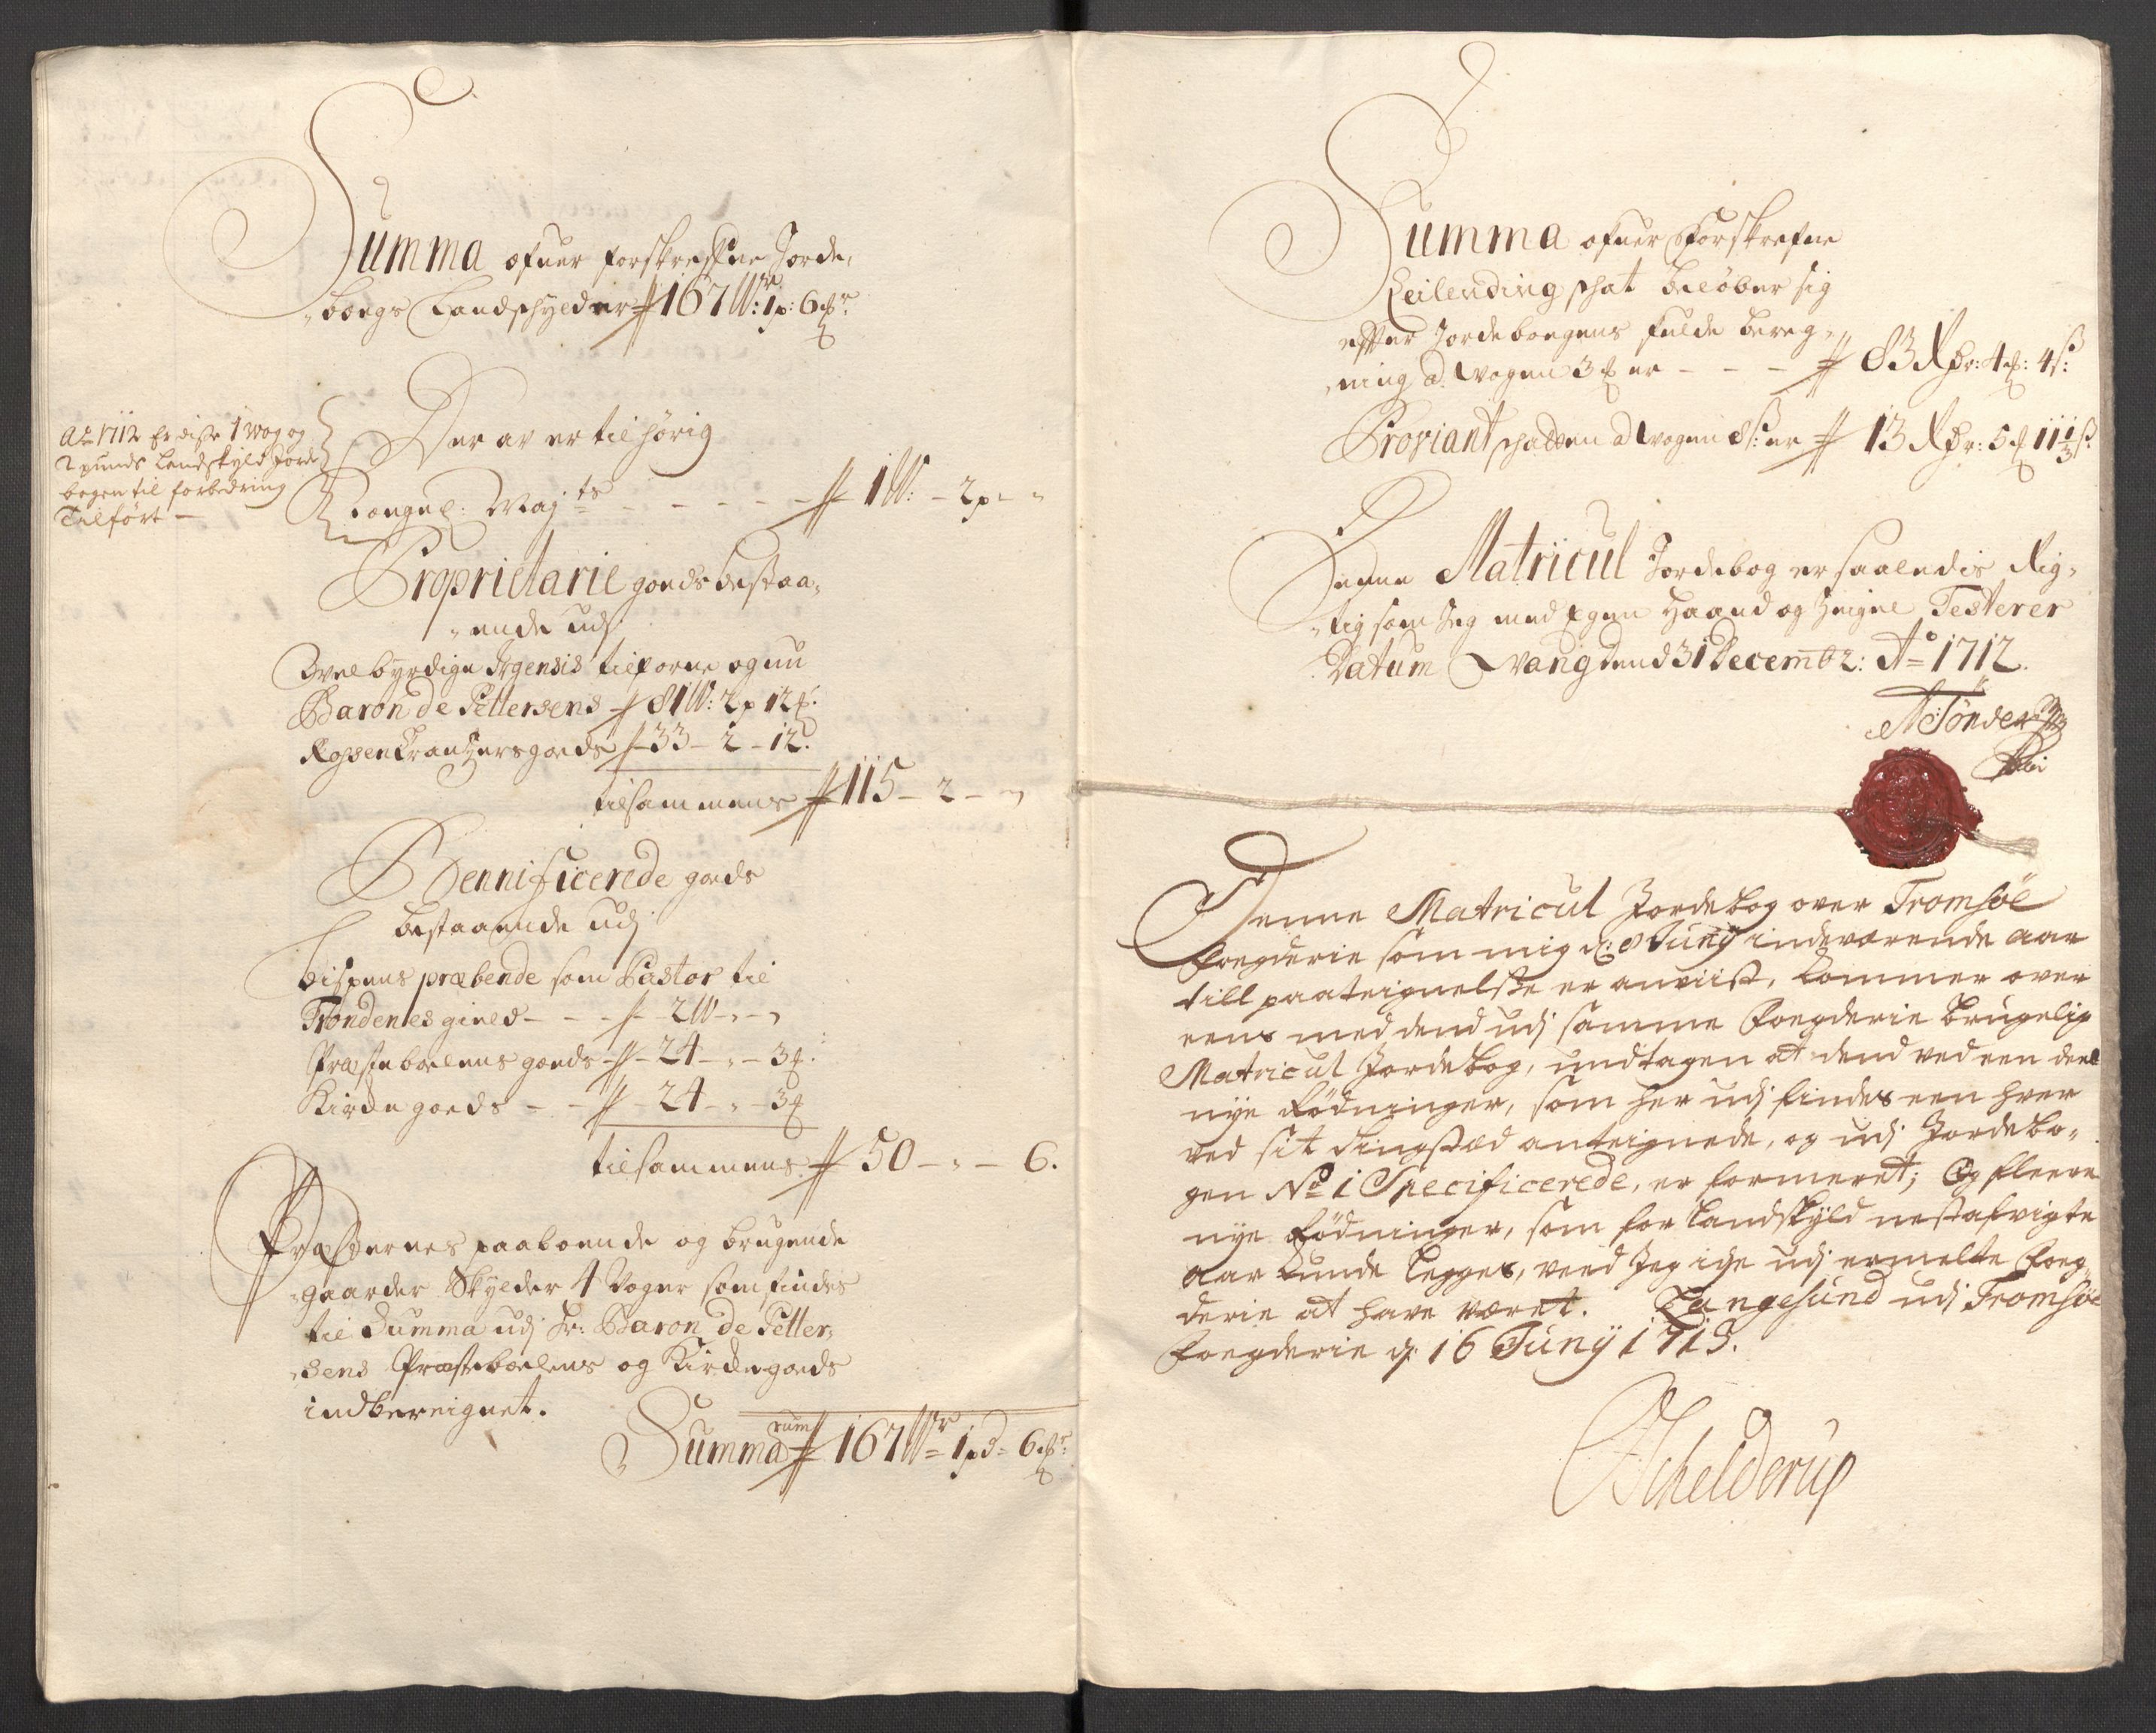 Summa ofuer forskrefne Jorde,
„boegs Landschyld er # 167 W:r 1 p: 6 ℔r
Ao 1712 Er disse 1 Wog og
2 punds Landskyld Jorde
bogen til forbedring
Tilført –
Der av er tilhørig
Kongel: Mayts - - - - - # 1 W: – 2 p – „
Proprietarie goeds bestaa„
„ende udj
Welbyrdige Irgensis tilforne og nu
Baron de Pettersens # 81 W: 2 p 12 ℔.
Rosenkrantzers goeds # 33 – 2 – 12.
tilsammens # 115 – 2 – „
Bennificerede goeds
bestaaende udj
bispens præbende som Pastor til
Trondenes gield - - - # – 2 W – „ – „
Præsteboelens goeds # – 24 – „ – 3 ℔.
Kirche goeds - - # – 24 – „ – 3 ℔
tilsammens # 50 – „ – 6.
Præsternes paaboende og brugende
„gaarder Skylder 4 Voger som findes
til Summa udj Hr: Baron de Petter,
„sens Præsteboelens og Kirche goeds
indbereignet.
Summa rum # 167 Wr = 1 pd = 6 ℔r:
Summa ofuer Forskrefne
Leilending schat beløber sig
efter Jordeboegens fulde bereg„
„ning a Wogen 3 ℔ er - - - # 83 Rdr: 4 ℔: 4 s:
Proviant schatten a Wogen 8 s: er # 13 Rdr: 5 ℔ 11 1/3 s.
Denne Matricul Jordebog er saaledis Rig„
„tig som Jeg med Egen Haand og Zeigne Testerer
Datum Wang dend 31 Decembr: Ao 1712.
A Tønder
Denne Matricul Jordebog over Tromsøe
foegderie som mig d: 8 Junij indeværende aar
till paateignelse er anviist, kommer over
eens med dend udj samme foegderie brugelig
Matricul Jordebog, undtagen at dend ved een deel
nye Rødninger, som her udj findes een hver
ved sit tingstæd anteignede, og udj Jordebo„
gen No 1 Specificerede, er formeret; Og fleere
nye Rødninger, som for Landskyld nestafvigte
aar kunde legges, veed Jeg icke udj ermelte foeg„
derie at have været. Langesund udj Tromsøe
foegderie d. 16 Junij 1713.
Schelderup